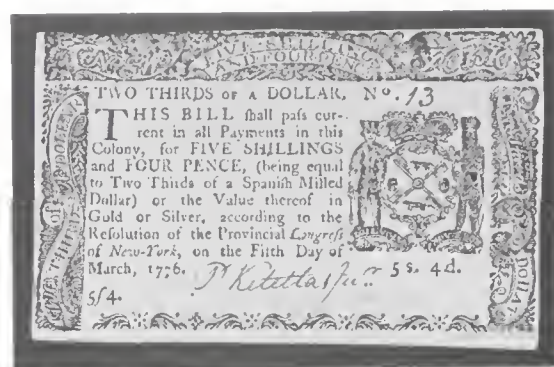 FIVE SHILLINGS
AND FOUR PENCE
TWO THIRDS OF A DOLLAR, No. 13
THIS BILL ſhall paſs cur-
rent in all Payments in this
Colony, for FIVE SHILLINGS
and FOUR PENCE, (being equal
to Two Thirds of a Spaniſh Milled
Dollar) or the Value thereof in
Gold or Silver, according to the
Reſolution of the Provincial Congreſs
of New-York, on the Fifth Day of
March, 1776.
5 s. 4 d.
5ſ4.